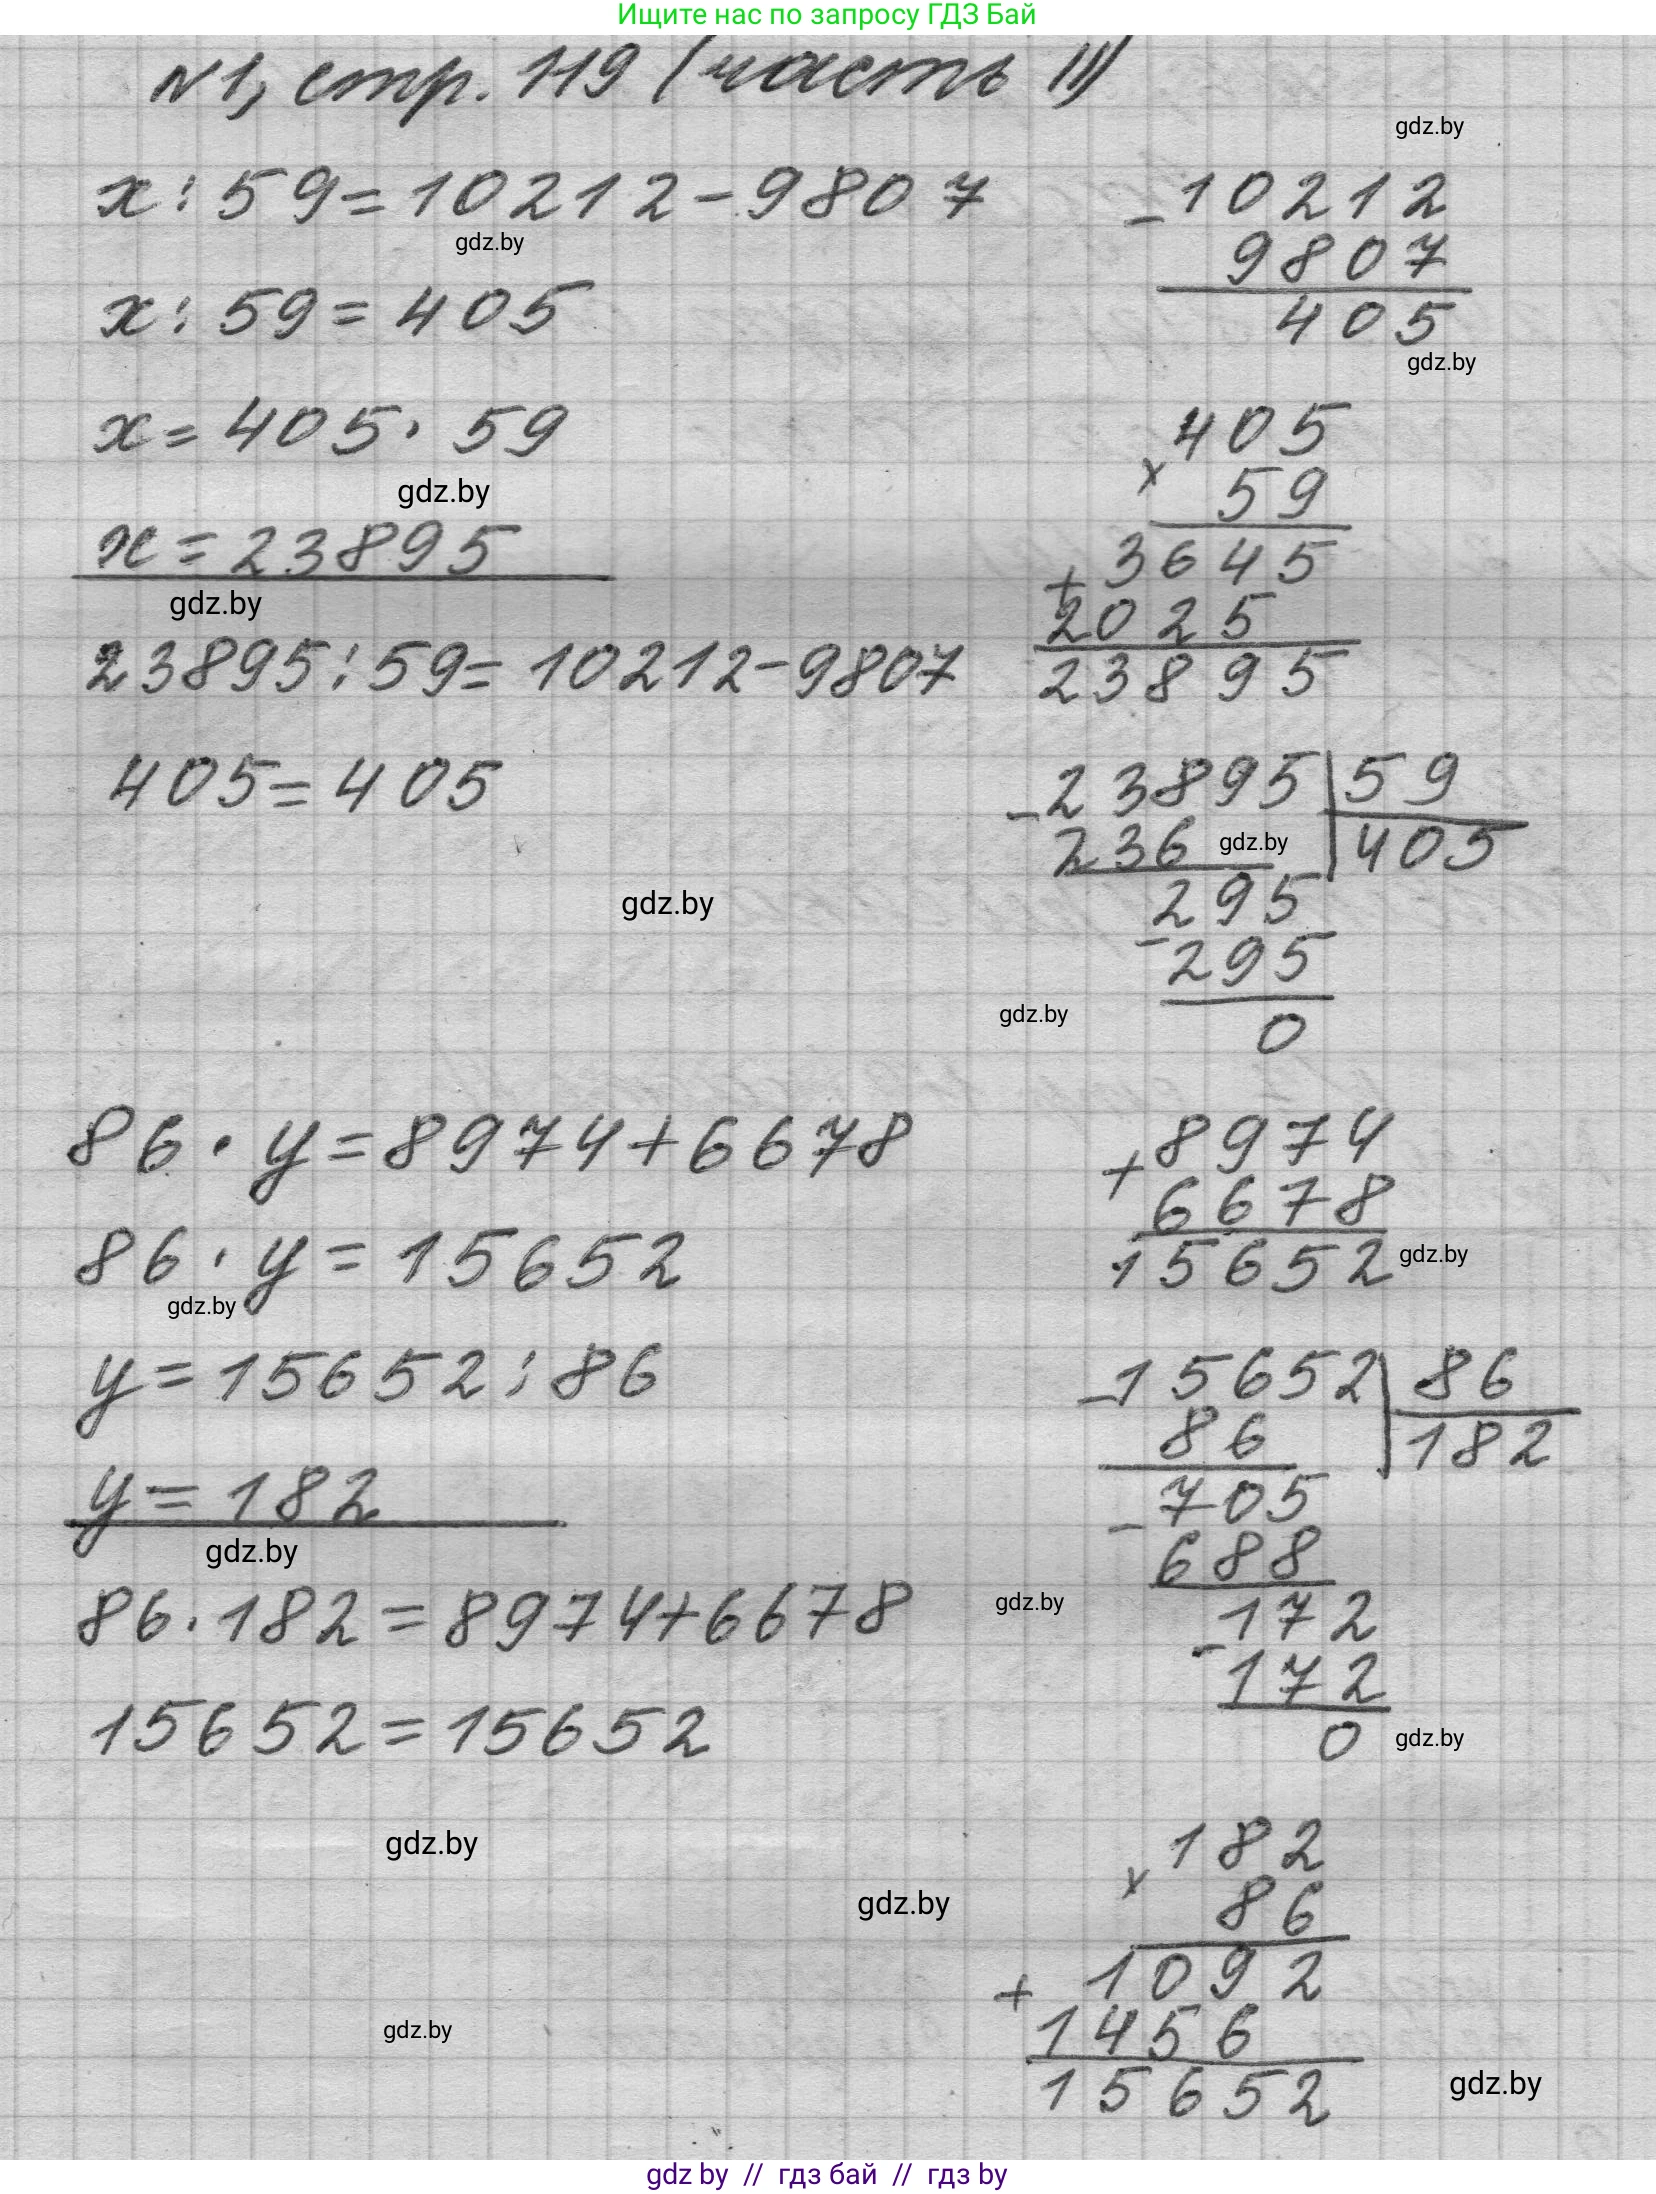 Ищите нас по запросу ГДЗ Бай
№1, стр. 119 (часть II)
gdz.by
x : 59 = 10212 - 9807
gdz.by
x : 59 = 405
x = 405 · 59
gdz.by
x = 23895
gdz.by
23895 : 59 = 10212 - 9807
405 = 405
gdz.by
- 10212
9807
405
gdz.by
405
x 59
3645
+ 2025
23895
- 23895 | 59
236 gdz.by 405
295
- 295
gdz.by
0
86 · y = 8974 + 6678
86 · y = 15652
gdz.by
y = 15652 : 86
y = 182
gdz.by
86 · 182 = 8974 + 6678
15652 = 15652
gdz.by
8974
+ 6678
15652 gdz.by
- 15652 | 86
86 182
705
- 688
gdz.by
172
- 172
0 gdz.by
182
x 86
gdz.by
1092
+ 1456
15652
gdz.by
gdz.by
gdz by // гдз бай // гдз by